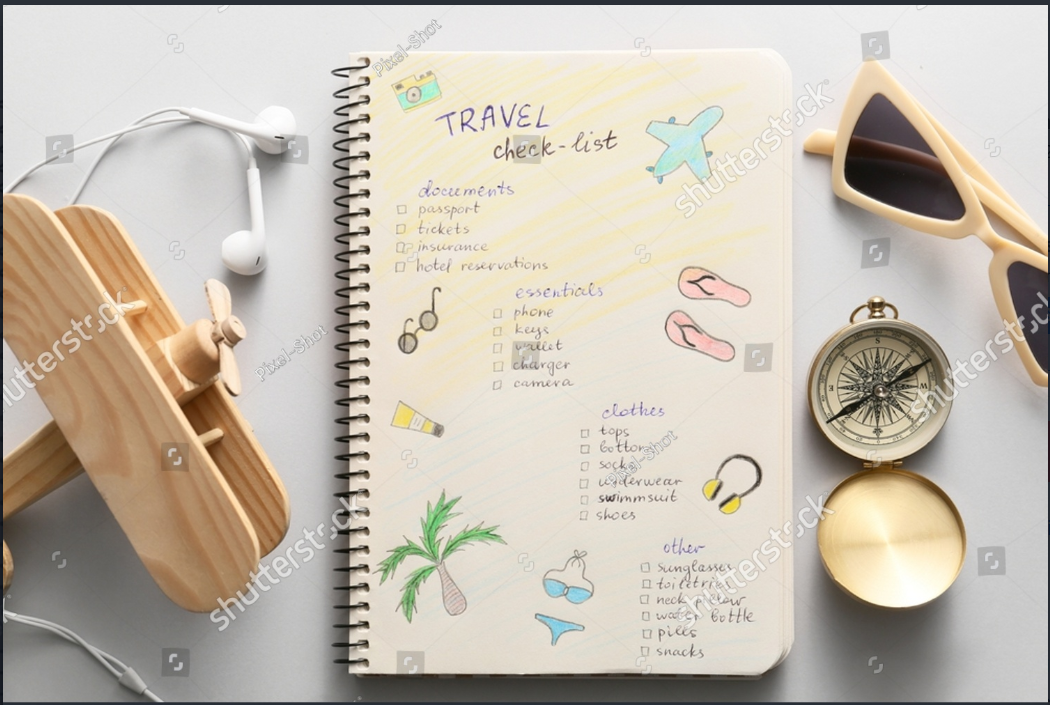 TRAVEL
check-list
documents
passport
tickets
insurance
hotel reservations
essentials
phone
keys
wallet
charger
camera
clothes
tops
bottoms
socks
underwear
swimmsuit
shoes
other
sunglasses
toiletries
neck pillow
water bottle
pills
snacks
Pixel-Shot
Pixel-Shot
Pixel-Shot
shutterstock
shutterstock
shutterstock
shutterstock
shutterstock
shutterstock
S
W